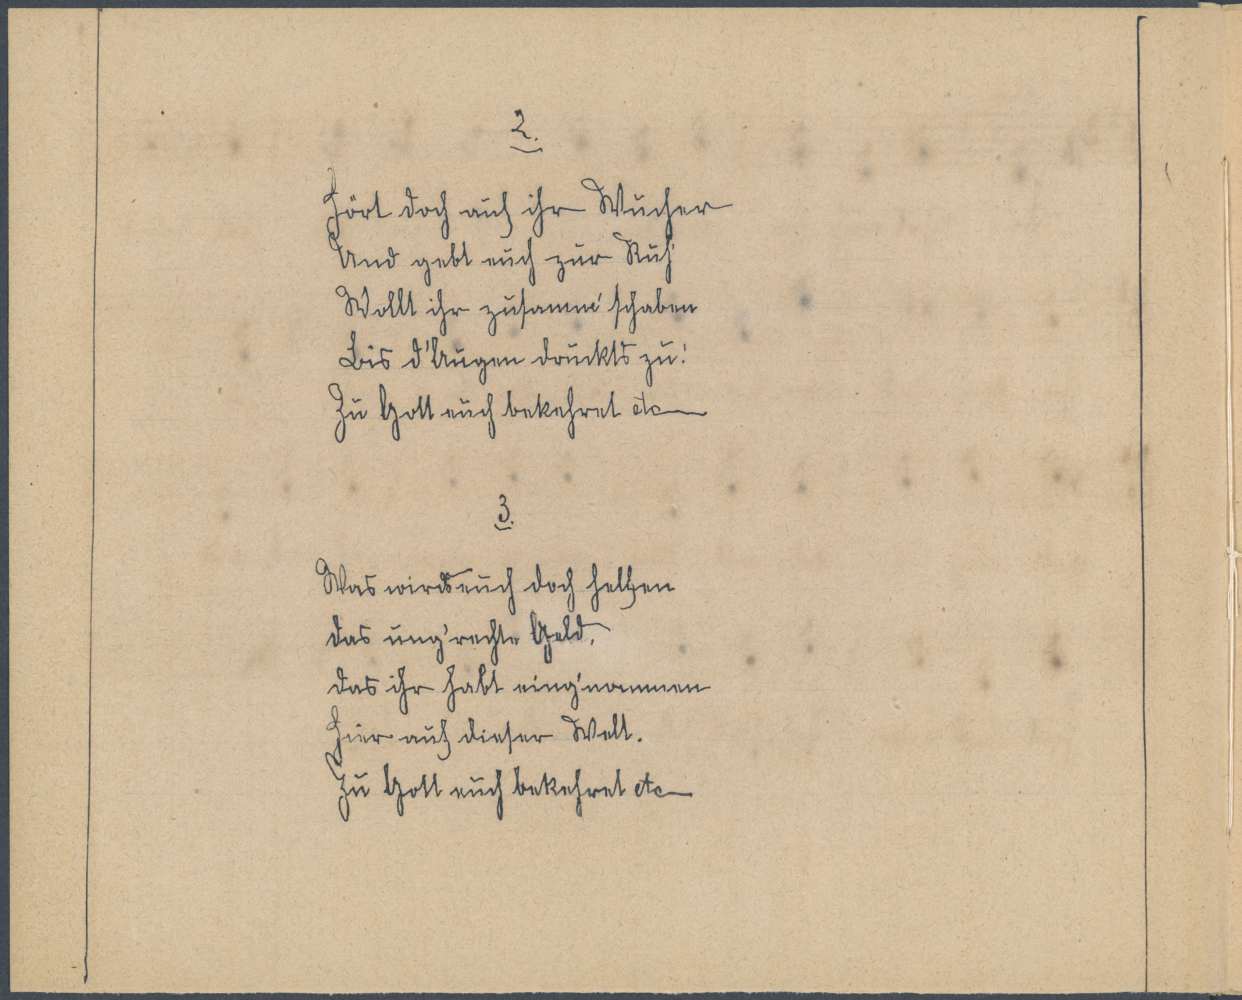 2.
Hört doch auf ihr Wucher
Und gebt euch zur Ruh'
Wollt ihr zusamm' schaben
Bis d'Augen druckts zu!
Zu Gott euch bekehret etc
3.
Was wirds euch doch helfen
das ung'rechte Geld,
das ihr habt eing'nommen
hier auf dieser Welt.
Zu Gott euch bekehret etc